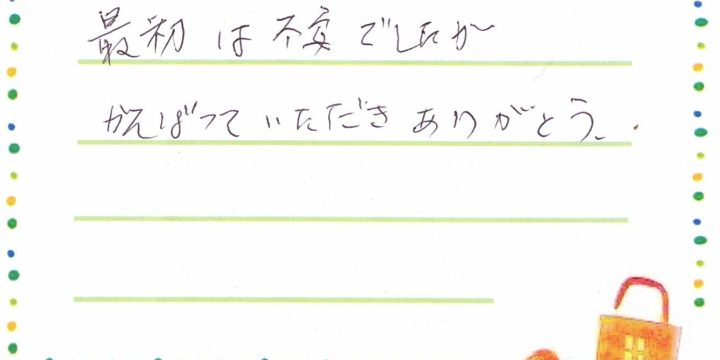 最初は不安でしたが
がんばっていただきありがとう.